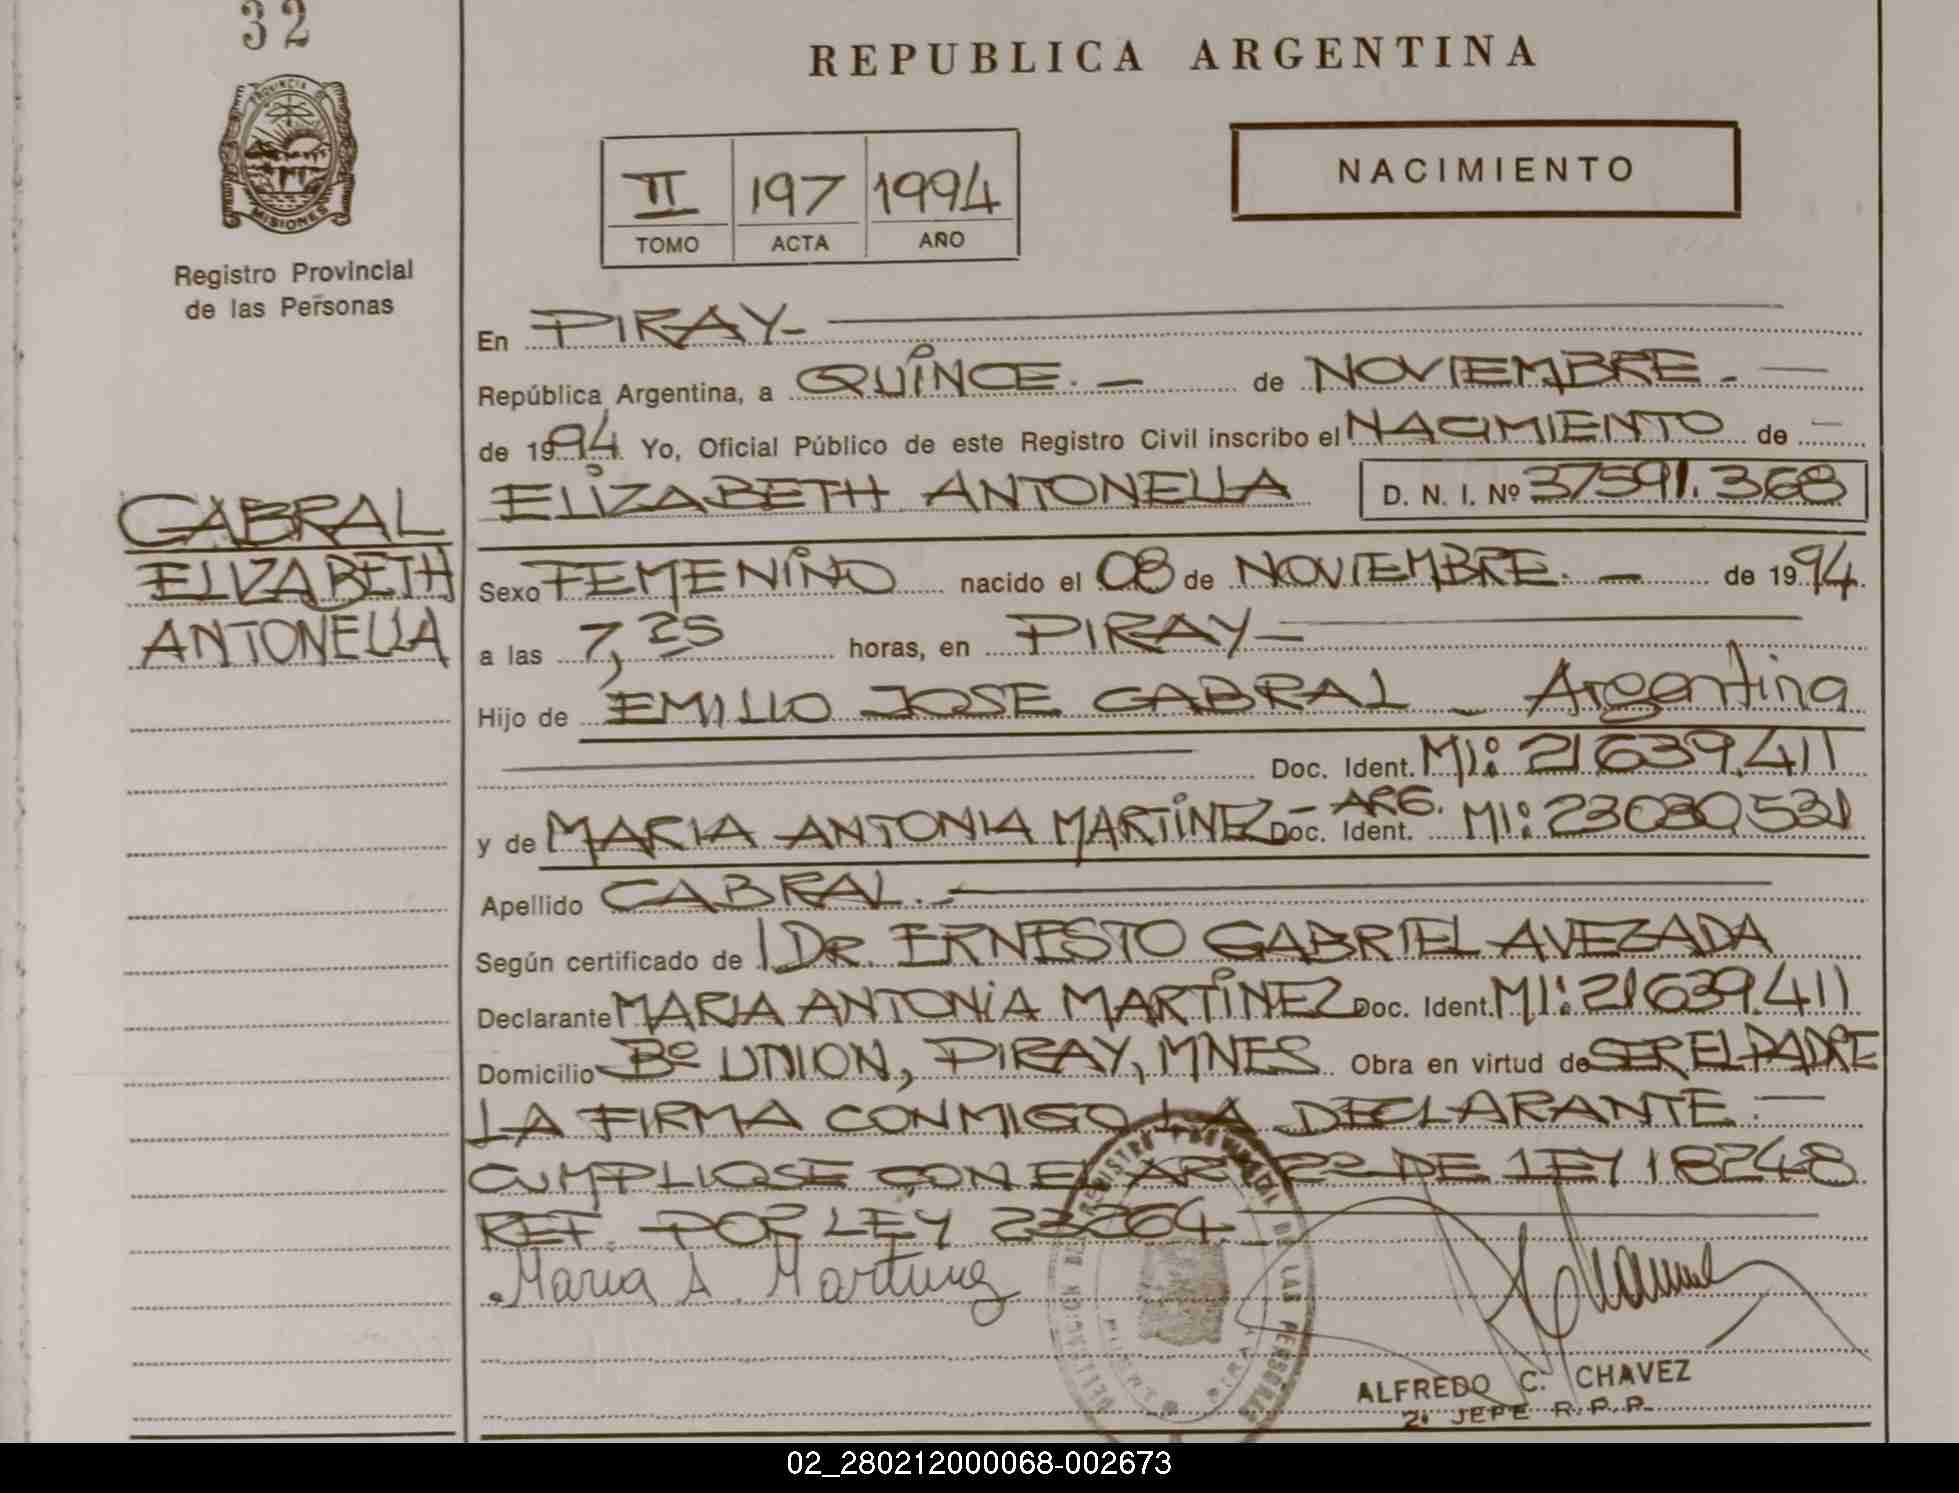 32
REPUBLICA ARGENTINA
PROVINCIA DE
MISIONES
Registro Provincial
de las Personas
II 197 1994
TOMO ACTA AÑO
NACIMIENTO
En PIRAY-
República Argentina, a QUINCE. - de NOVIEMBRE. -
de 1994 Yo, Oficial Público de este Registro Civil inscribo el NACIMIENTO de -
ELIZABETH ANTONELLA D. N. I. Nº 37591.368
CABRAL
ELIZABETH
ANTONELLA
Sexo FEMENINO nacido el 08 de NOVIEMBRE. - de 1994.
a las 7,25 horas, en PIRAY-
Hijo de EMILIO JOSE CABRAL - Argentina
Doc. Ident. MI: 21639.411
y de MARIA ANTONIA MARTINEZ - ARG. Doc. Ident. MI: 23080531
Apellido CABRAL.-
Según certificado de DR. ERNESTO GABRIEL AVEZADA
Declarante MARIA ANTONIA MARTINEZ Doc. Ident. MI: 21639.411
Domicilio Bº UNION, PIRAY, MNES Obra en virtud de SER EL PADRE
LA FIRMA CONMIGO LA DECLARANTE. -
CUMPLIOSE CON EL ART 22 DE LEY 18248
REF. POR LEY 23264.-
Maria A. Martinez
ALFREDO C. CHAVEZ
2º JEFE R.P.P.
02_280212000068-002673